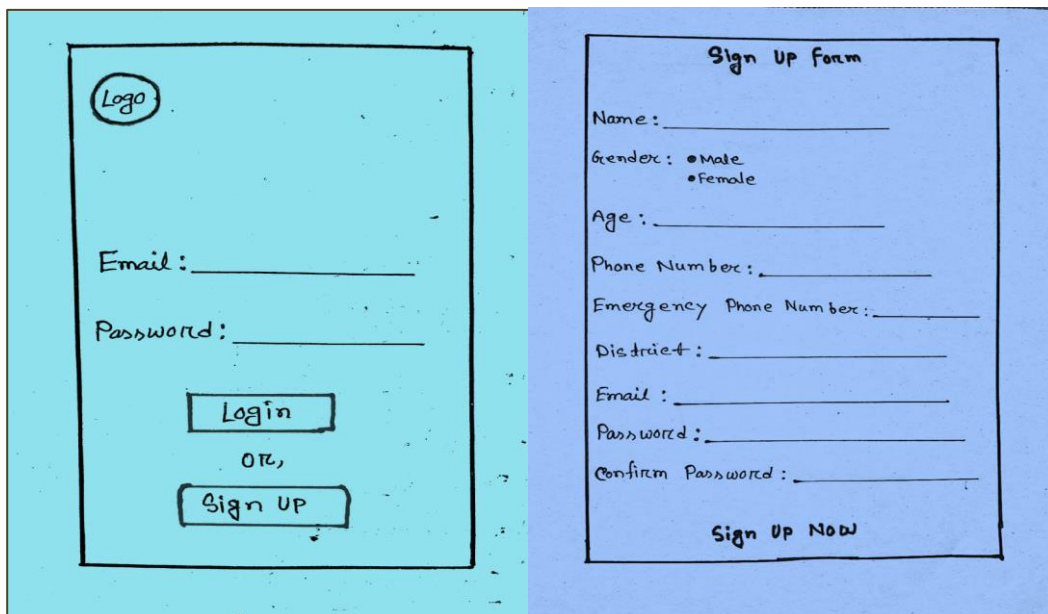 Logo
Email:
Password:
Login
OR,
Sign UP
Sign UP Form
Name:
Gender: •Male
•Female
Age:
Phone Number:
Emergency Phone Number:
District:
Email:
Password:
Confirm Password:
Sign UP Now